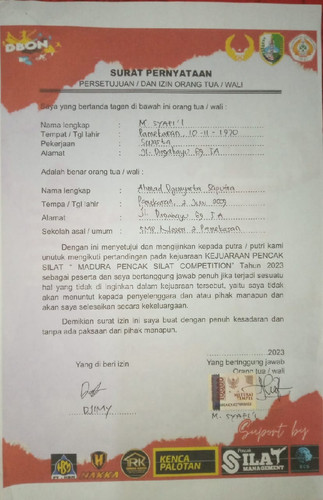 DBON
SURAT PERNYATAAN
PERSETUJUAN / DAN IZIN ORANG TUA / WALI
Saya yang bertanda tagan di bawah ini orang tua / wali :
Nama lengkap : M. SYAFI'I
Tempat / Tgl lahir : Pamekasan, 10-11-1970
Pekerjaan : Swasta
Alamat : Jl.
Adalah benar orang tua / wali :
Nama lengkap : Ahmad Saputra
Tempa / Tgl lahir : Pamekasan, 2 Juni
Alamat : Jl.
Sekolah asal / umum : SMP Negeri 2 Pamekasan
Dengan ini menyetujui dan mengijinkan kepada putra / putri kami
unutuk mengikuti pertandingan pada kejuaraan KEJUARAAN PENCAK
SILAT " MADURA PENCAK SILAT COMPETITION" Tahun 2023
sebagai peserta dan saya bertanggung jawab penuh jika terjadi sesuatu
hal yang tidak di inginkan dalam kejuaraan tersebut, yaitu saya tidak
akan menuntut kepada penyelenggara dan atau pihak manapun dan
akan saya selesaikan secara kekeluargaan.
Demikian surat izin ini saya buat dengan penuh kesadaran dan
tanpa ada paksaan dari pihak manapun.
2023
Yang di beri izin
Yang bertinggung jawab
Orang tua / wali
METERAI TEMPEL
DJIMY
M. SYAFI'I
Suport by
HANKA
RK
KENCA PALOTAN
Pencak SILAT MANAGEMENT